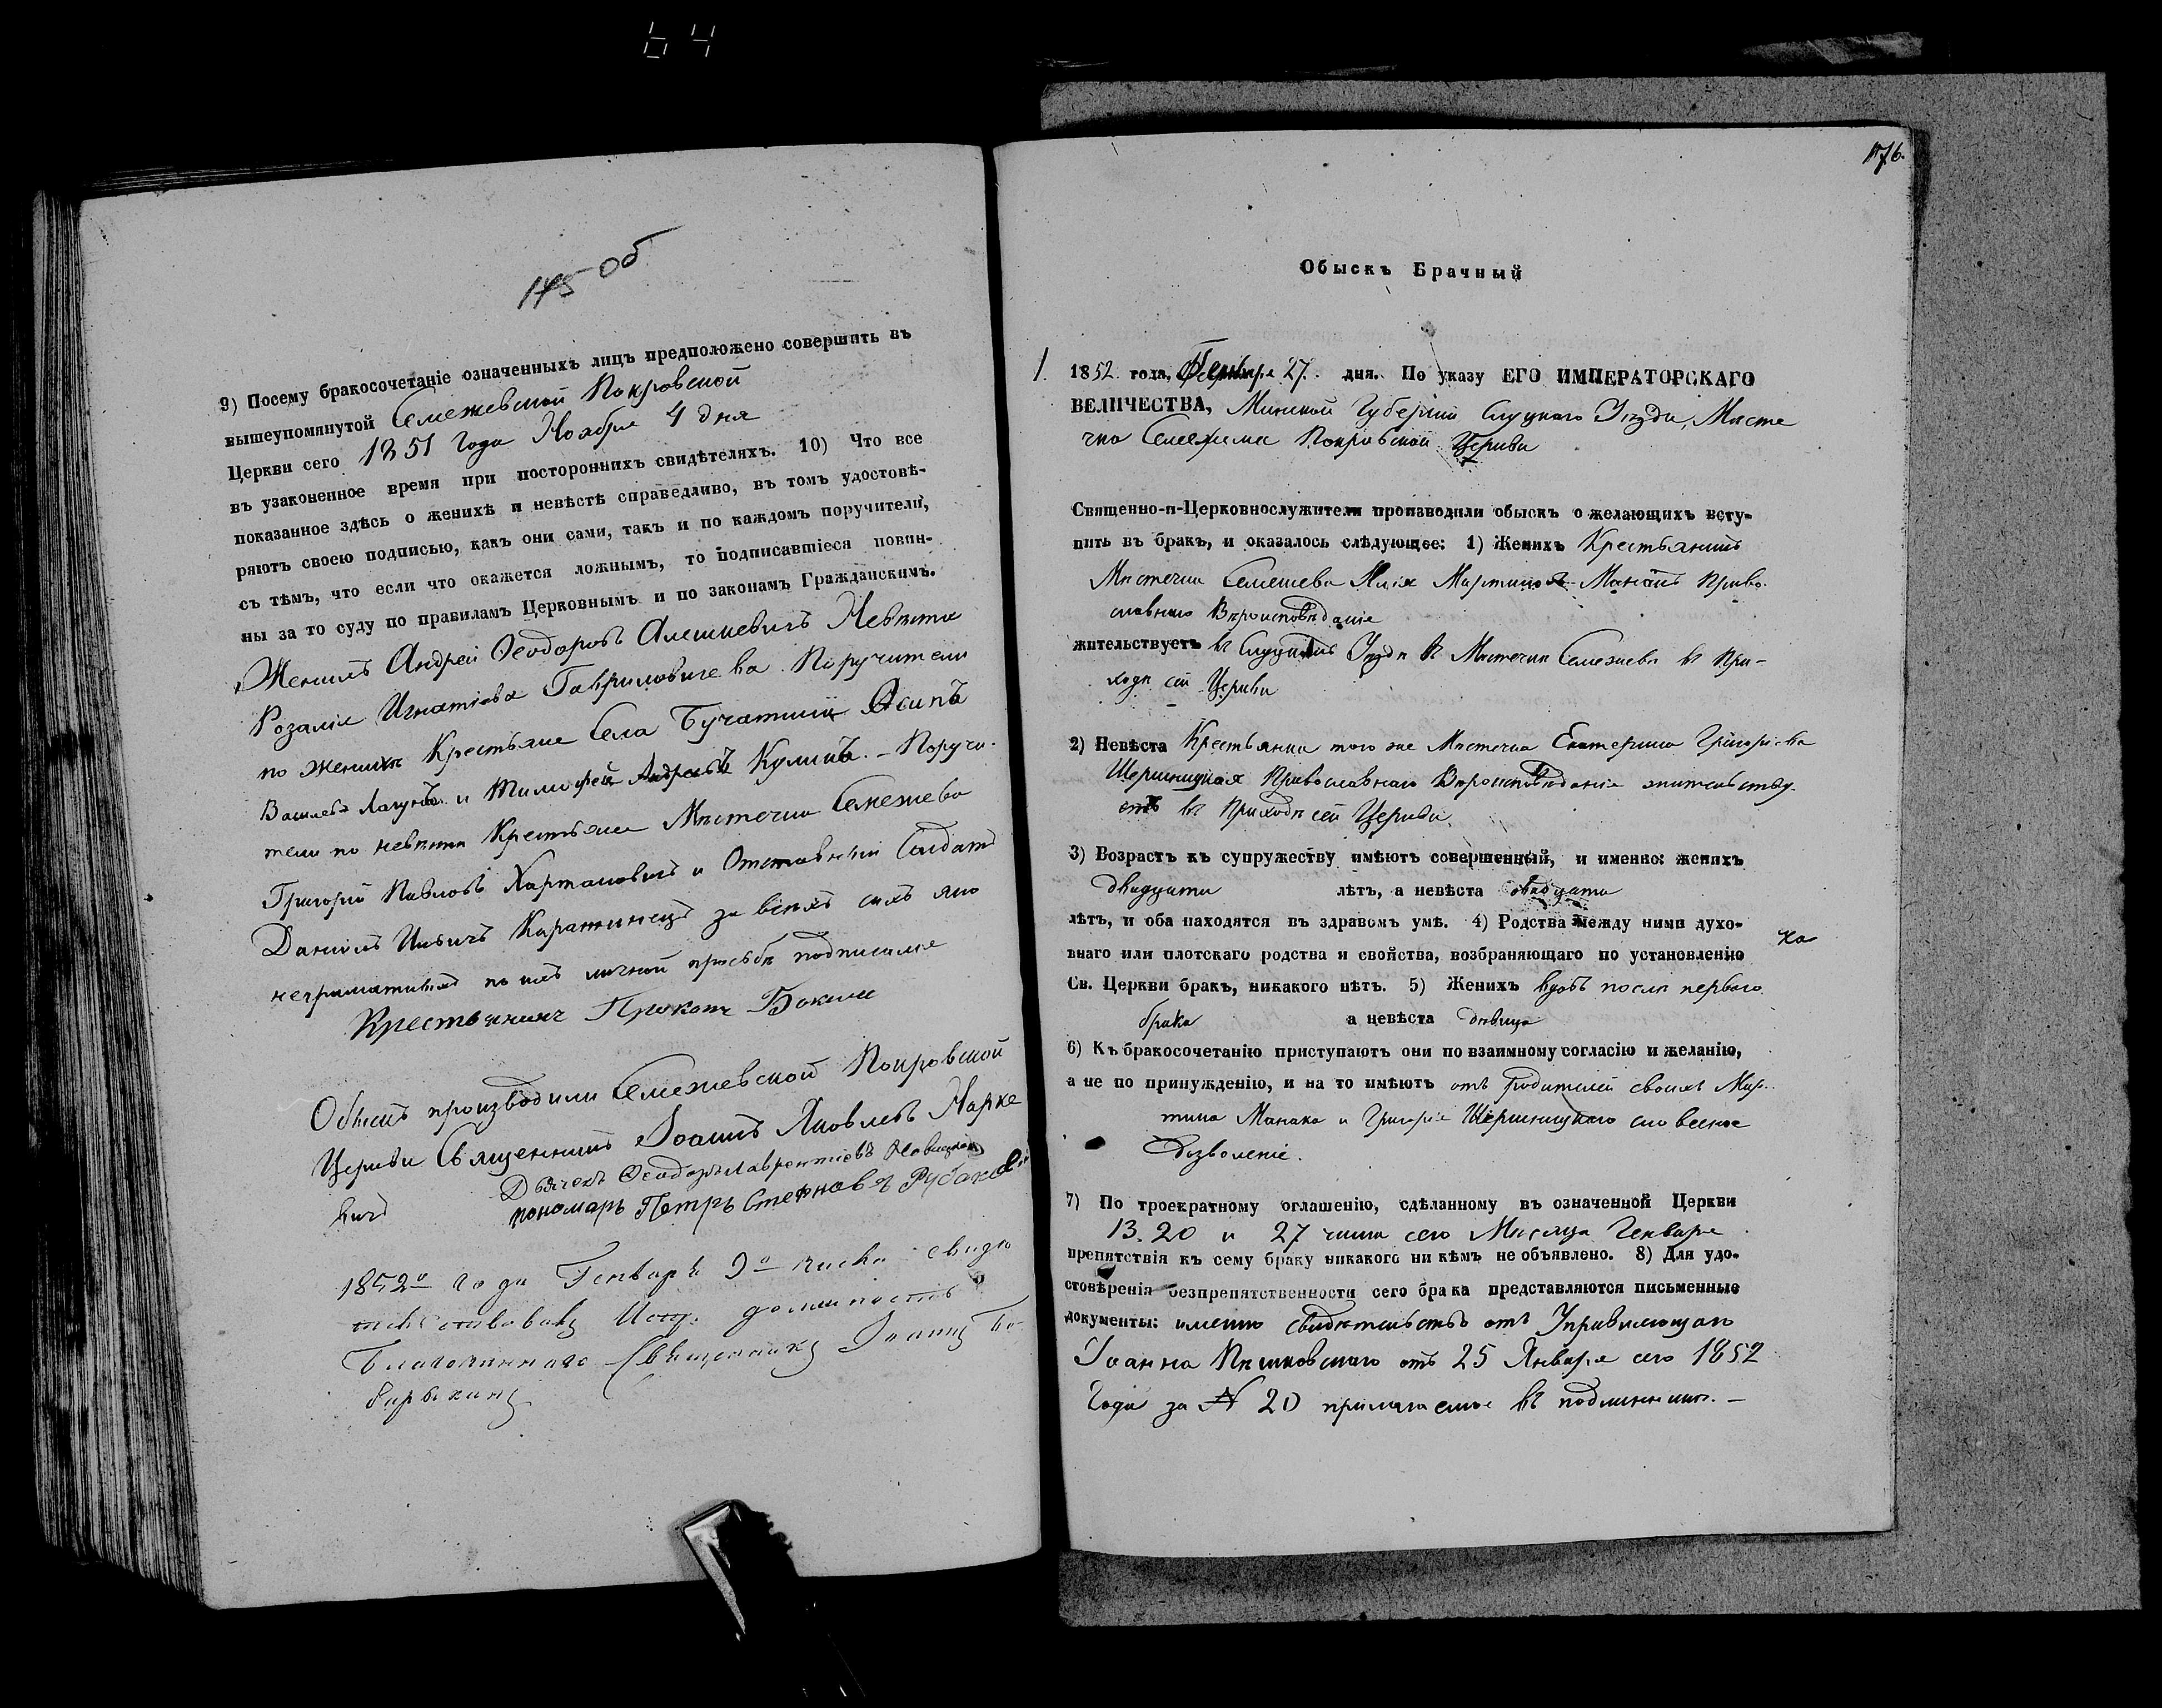 64
175 об
9) Посему бракосочетаніе означенныхъ лицъ предположено совершить въ
вышеупомянутой Семежевской Покровской
Церкви сего 1851 года Ноября 4 дня
въ узаконенное время при постороннихъ свидѣтеляхъ. 10) Что все
показанное здѣсь о женихѣ и невѣстѣ справедливо, въ томъ удостовѣ-
ряютъ своею подписью, какъ они сами, такъ и по каждомъ поручители,
съ тѣмъ, что если что окажется ложнымъ, то подписавшіеся повин-
ны за то суду по правиламъ Церковнымъ и по законамъ Гражданскимъ.
Женихъ Андрей Ѳеодоровъ Алешкевичъ Невѣста
Розалія Игнатіева Гавриловичева Поручители
по женихѣ Крестьяне Села Бучатина Осипъ
Васильевъ и Тимофей Андреевъ Куликъ. – Поручи-
тели по невѣстѣ Крестьяне Мѣстечка Семежева
Григорій Павловъ Хартановичъ и Отставный Солдатъ
Даніилъ за всѣхъ ихъ яко
неграматныхъ по ихъ личной просьбѣ подписался
Крестьянинъ Прокопъ
Обыскъ производили Семежевской Покровской
Церкви Священникъ Іоаннъ Яковлевъ Нарке
вичъ
Дьячекъ Ѳеодоръ Лаврентіевъ Новицкій
пономаръ Петръ Стефановъ
1852го года Генваря 9го числа свидѣ
тельствовалъ Исп. должность
Благочиннаго Священникъ Іоаннъ
176.
Обыскъ Брачный
1. 1852 года, 27. дня. По указу ЕГО ИМПЕРАТОРСКАГО
ВЕЛИЧЕСТВА, Минской Губерніи Слуцкого Уѣзда, Мѣсте
чка Семежева Покровской Церкви
Священно-и-Церковнослужители производили обыскъ о желающихъ всту-
пить въ бракъ, и оказалось слѣдующее: 1) Женихъ Крестьянинъ
Мѣстечка Семежева Илія Мартиновъ Манакъ Право-
славнаго Вѣроисповѣданія
жительствуетъ въ Слуцкомъ Уѣздѣ въ Мѣстечкѣ Семежевѣ въ При-
ходѣ сей Церкви
2) Невѣста Крестьянка того же Мѣстечка Екатерина Григоріева
Православнаго Вѣроисповѣданія жительству-
етъ въ Приходѣ сей Церкви.
3) Возрастъ къ супружеству имѣютъ совершенный, и именно: женихъ
двадцати лѣтъ, а невѣста двадцати
лѣтъ, и оба находятся въ здравомъ умѣ. 4) Родства между ними духо-
внаго или плотскаго родства и свойства, возбраняющаго по установленію
Св. Церкви бракъ, никакого нѣтъ. 5) Женихъ вдовъ послѣ перваго
брака а невѣста дѣвица
6) Къ бракосочетанію приступаютъ они по взаимному согласію и желанію,
а не по принужденію, и на то имѣютъ отъ родителей своихъ Мар-
тина Манака и Григорія словесное
дозволеніе.
7) По троекратному оглашенію, сдѣланному въ означенной Церкви
13. 20 и 27 числа сего Мѣсяца Генваря
препятствія къ сему браку никакого ни кѣмъ не объявлено. 8) Для удо-
стовѣренія безпрепятственности сего брака представляются письменные
документы: именно свидѣтельство отъ Управляющаго
Іоанна отъ 25 Января сего 1852
года за № 20 прилагаемое въ подлинникѣ. –